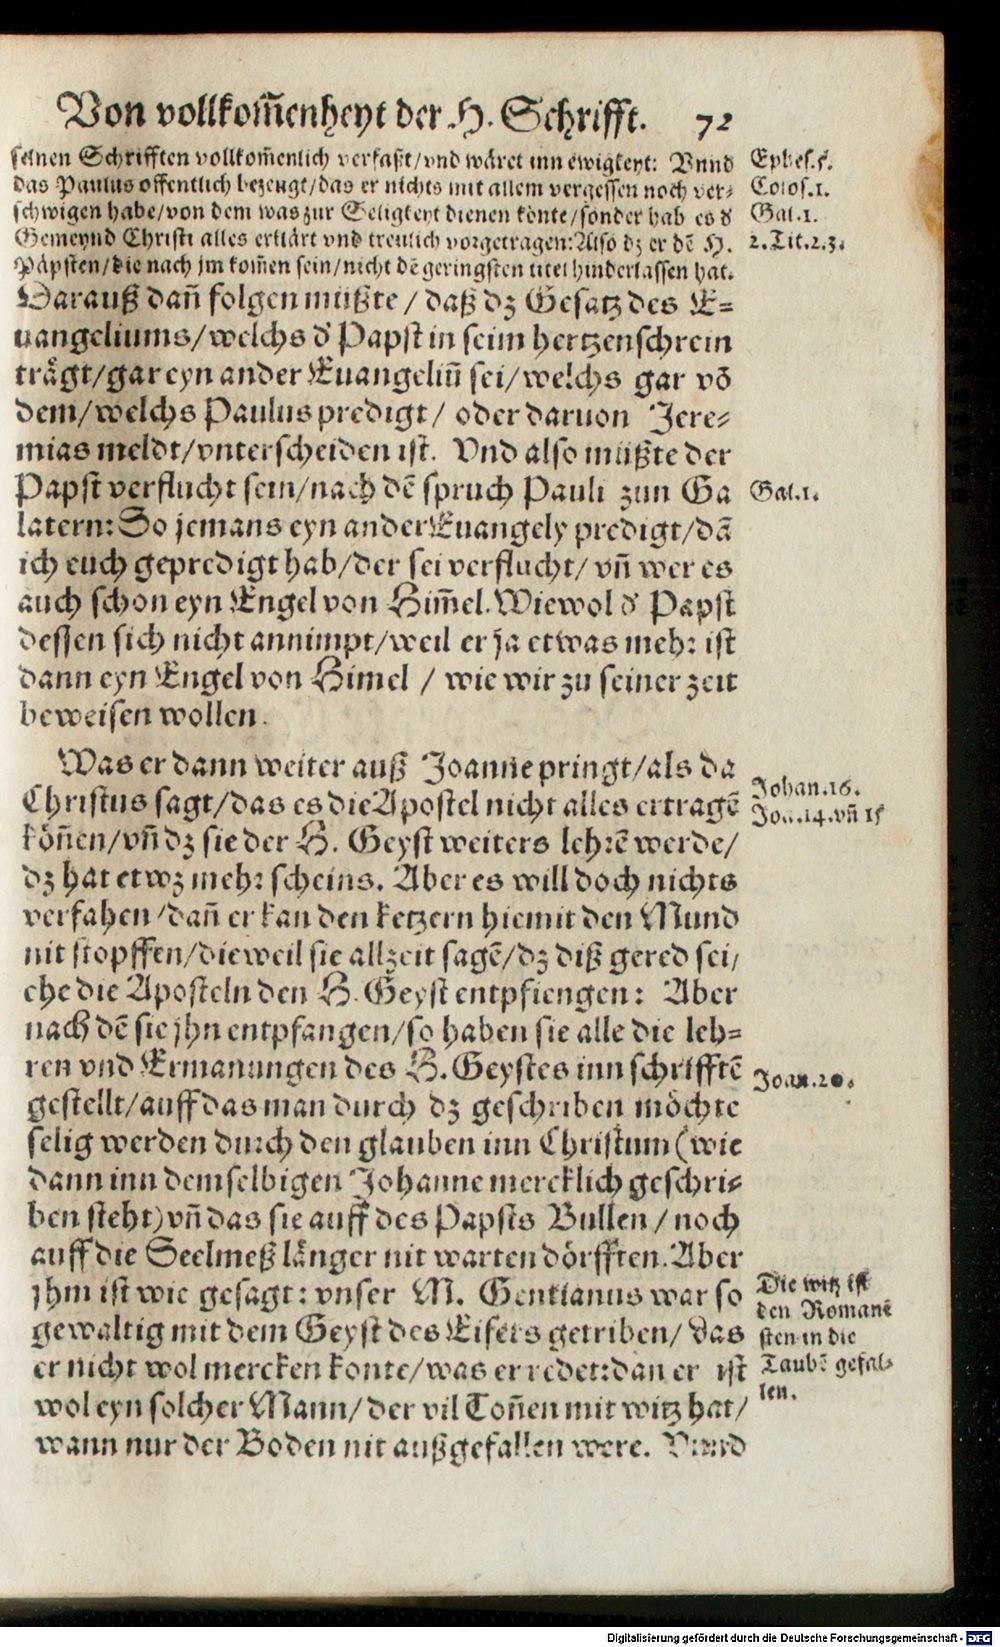 Von vollkom̃enheyt der H. Schrifft. 72
seinen Schrifften vollkom̃enlich verfaßt/vnd wäret inn ewigkeyt: Vnnd
das Paulus offentlich bezeugt/das er nichts mit allem vergessen noch ver-
schwigen habe/von dem was zur Seligkeyt dienen könte/sonder hab es d'
Gemeynd Christi alles erklärt vnd treulich vorgetragen: Also dz er dē H.
Päpsten/die nach jm kom̃en sein/nicht dē geringsten titel hinderlassen hat.
Ephes. 5.
Colos. 1.
Gal. 1.
2. Tit. 2. 3.
Darauß dañ folgen müßte / daß dz Gesatz des E-
uangeliums/welchs d' Papst in seim hertzenschrein
trägt/gar eyn ander Euangeliũ sei/welchs gar võ
dem/welchs Paulus predigt/ oder daruon Jere-
mias meldt/vnterscheiden ist. Vnd also müßte der
Papst verflucht sein/nach dē spruch Pauli zun Ga
Gal. 1.
latern: So jemans eyn ander Euangely predigt/dã
ich euch gepredigt hab/der sei verflucht/ vñ wer es
auch schon eyn Engel von Him̃el. Wiewol d' Papst
dessen sich nicht annimpt/weil er ja etwas mehr ist
dann eyn Engel von Himel / wie wir zu seiner zeit
beweisen wollen.
Was er dann weiter auß Joanne pringt/als da
Christus sagt/das es die Apostel nicht alles ertragē
Johan. 16.
Joa. 14. vñ 15
köñen/vñ dz sie der H. Geyst weiters lehrē werde/
dz hat etwz mehr scheins. Aber es will doch nichts
verfahen/dañ er kan den ketzern hiemit den Mund
nit stopffen/dieweil sie allzeit sagē/dz diß gered sei/
ehe die Aposteln den H. Geyst entpfiengen: Aber
nach dē sie jhn entpfangen/so haben sie alle die leh-
ren vnd Ermanungen des H. Geystes inn schrifftē
Joan. 20.
gestellt/auff das man durch dz geschriben möchte
selig werden durch den glauben inn Christum (wie
dann inn demselbigen Johanne mercklich geschri-
ben steht) vñ das sie auff des Papsts Bullen / noch
auff die Seelmeß länger nit warten dörfften. Aber
jhm ist wie gesagt: vnser M. Gentianus war so
gewaltig mit dem Geyst des Eifers getriben/ das
er nicht wol mercken konte/was er redet: dan er ist
wol eyn solcher Mann/der vil Toñen mit witz hat/
wann nur der Boden nit außgefallen were. Vnnd
Die witz ist
den Romanē
sten in die
Taubē gefal-
len.
Digitalisierung gefördert durch die Deutsche Forschungsgemeinschaft - DFG